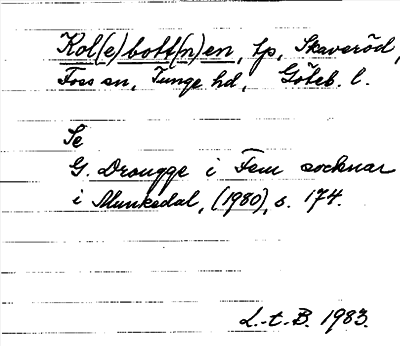 Kol(e)bott(n)en, lp, Skaveröd,
Foss sn, Tunge hd, Göteb. l.
Se
G. Drougge i Fem socknar
i Munkedal, (1980), s. 174.
L.-t.-B. 1983.